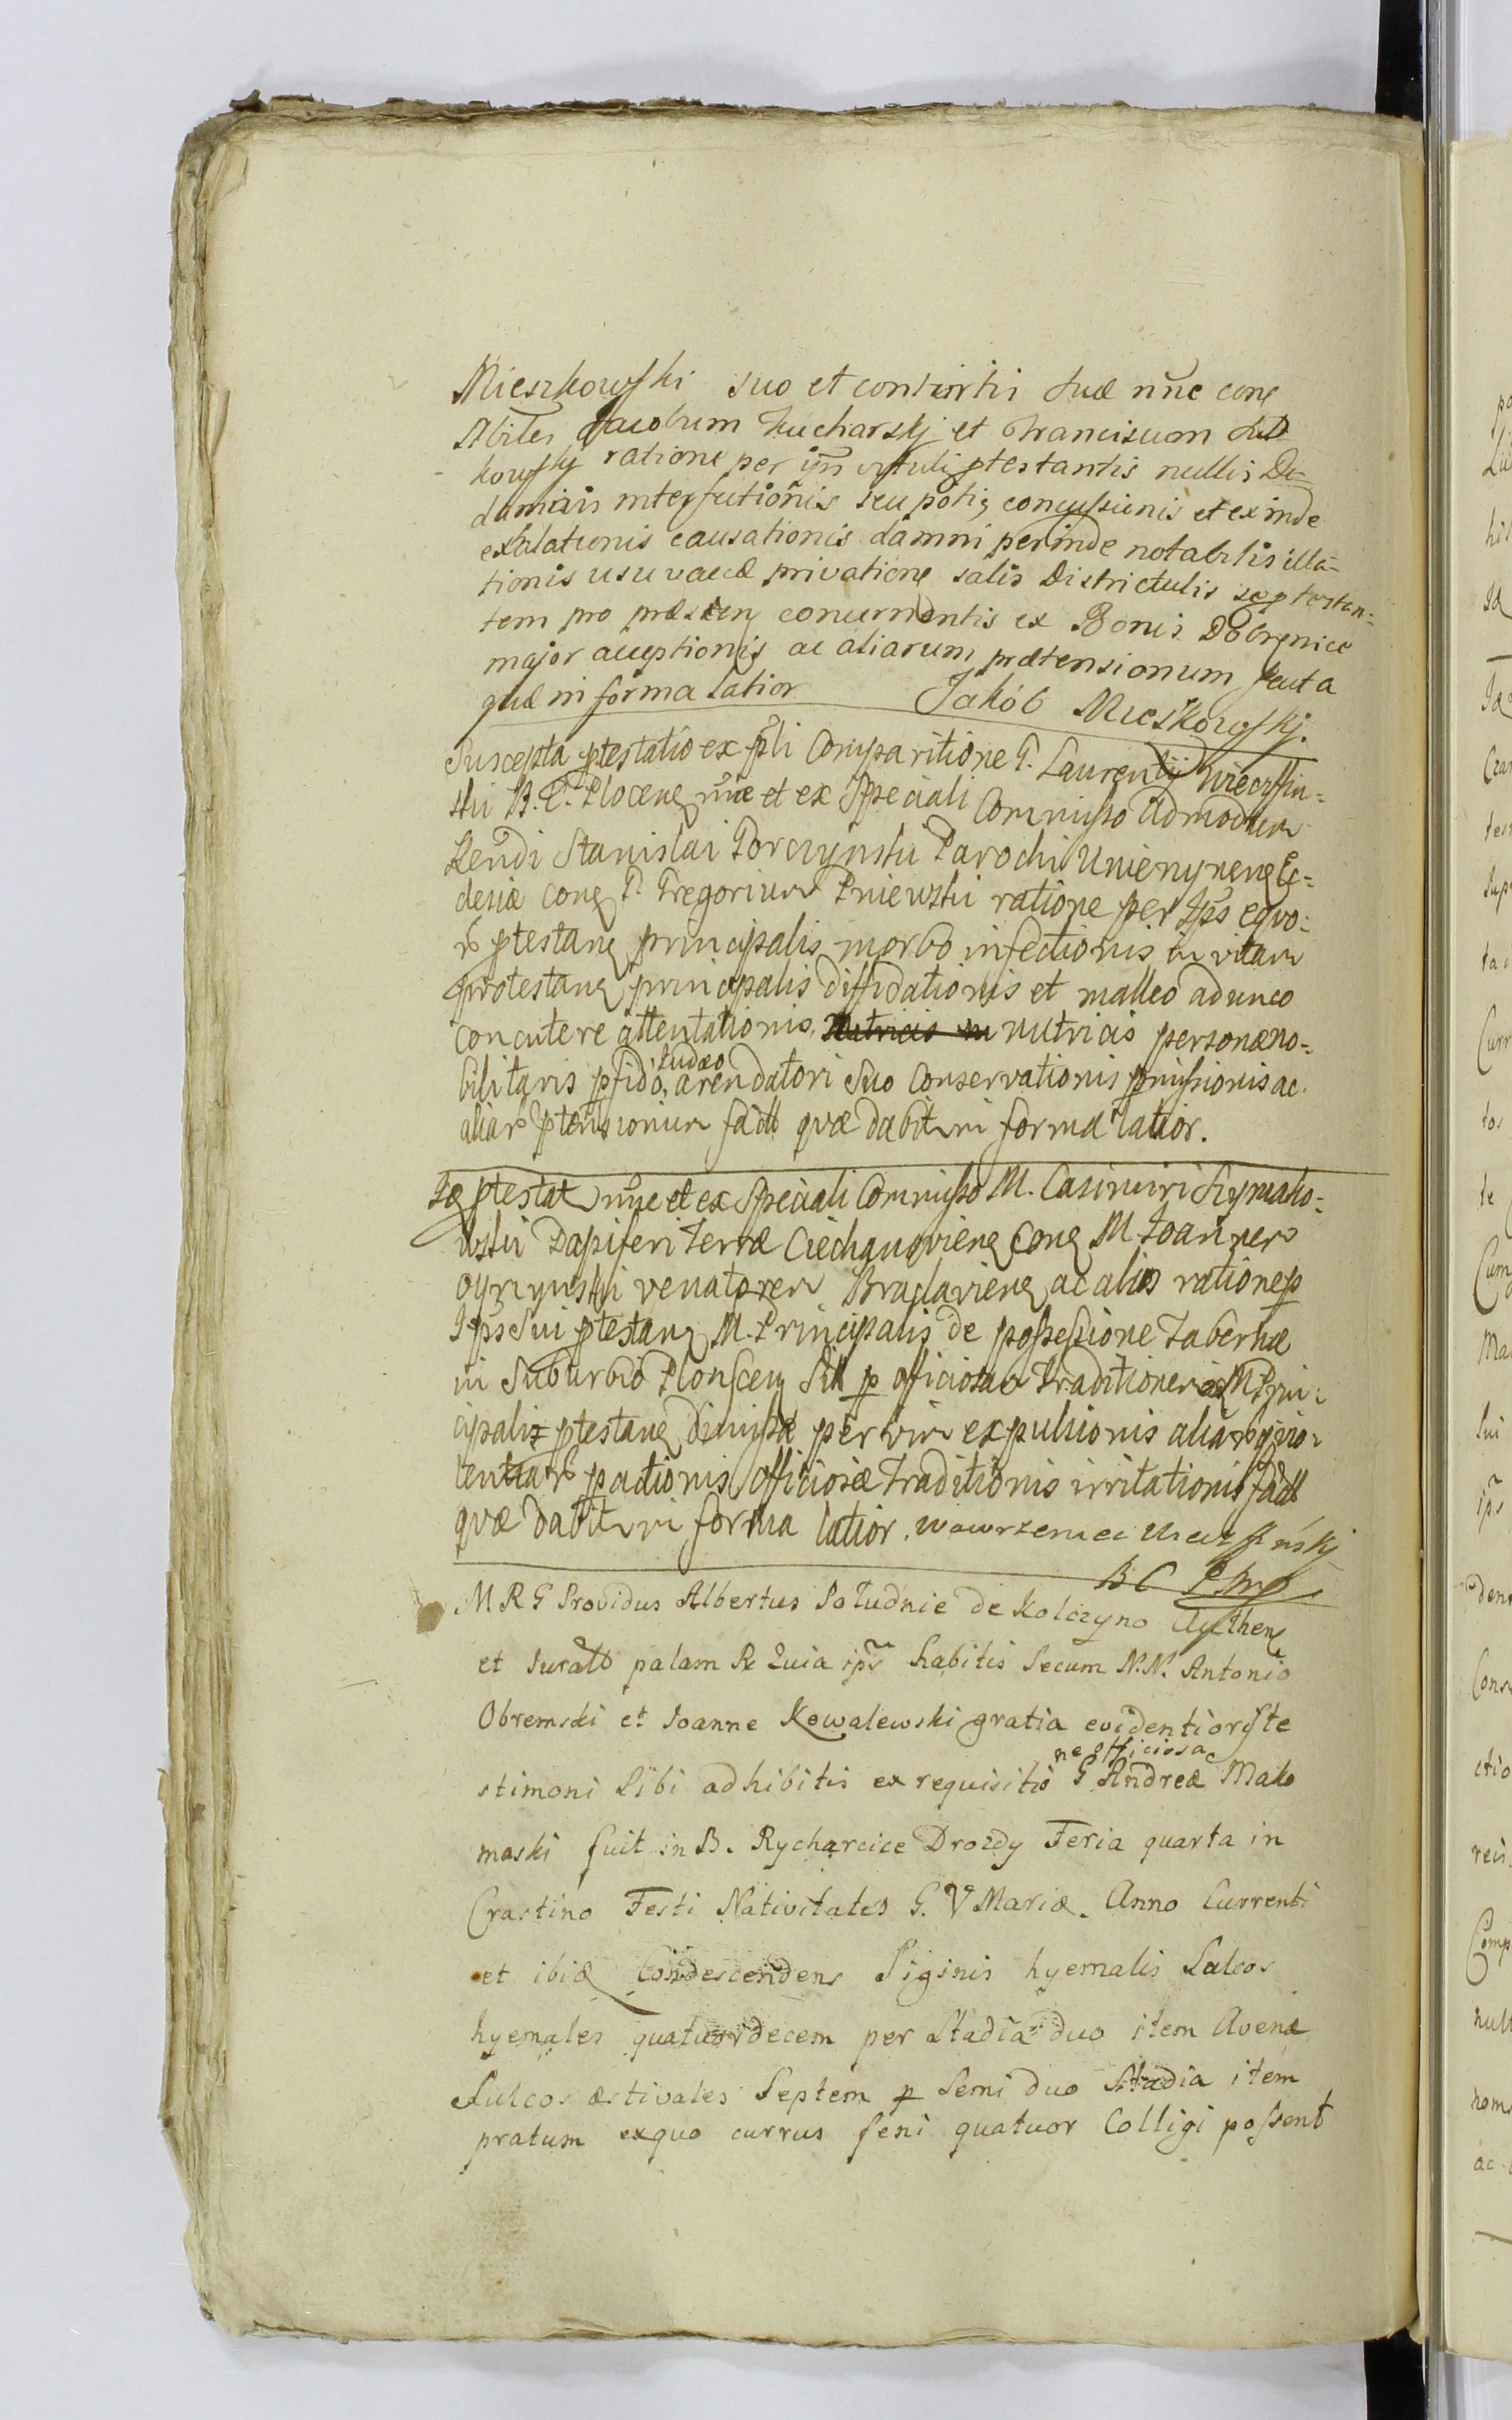 Mieszkowski suo et consortis suæ nne cong
Nbiles Jacobum Kucharskj et Franciscum
kowskj ratione per ipn vituli ptestantis nullis De-
damnis interfectionis seu potiq concussionis et exinde
exhalationis causationis damni perinde notabilis illa-
tionis usu vaccæ privationq salis Districtulis
tem pro præsen concernentis ex Bonis Dobrenice
major acceptionis ac aliarum prætensionum facta
quæ in forma latior Jakób Mieszkowskj.
Suscepta ptestatio ex pli Comparitione G. Laurentij
ski B. C. Plocenq nne et ex Speciali Commisso Admodum
Rendi Stanislai Gorczynski Parochi Ec-
clesiæ conq G. Gregorium Pniewski ratione per Ips eqvo-
rũ ptestanq principalis morbo infectionis in vitam
protestanq principalis diffidationis et malleo adunco
concutere attentationis, Nutricis in nutricis personæ no-
bilitaris pfido Iudæo arendatori Suo Conservationis pmissionis ac
aliarũ ptensionum facta qvæ dabit in forma latior.
Idq ptestat nne et ex Speciali Commisso M. Casimiri Szymako-
wski Dapiferi Terræ Ciechanovienq conq M. Joannem
Oyrzynski venatorem Braclavienq ac alios ratione p
Ips Sui ptestanq M. Principalis de possessione Tabernæ
in Suburbio Plonscenq Sit p officiosam Traditionem M Prin-
cipalis ptestanq dimissæ per vim expulsionis aliarũq vio-
lentiarũ pactionis officiosæ Traditionis irritationis facta
qvæ dabit in forma latior. Wawrzeniec
B C P mp
M R G Providus Albertus Południe de Kolczyno Aythenq
et Juratũ palam R Quia ips habitis Secum N.N. Antonio
Obremski et Joanne Kowalewski gratia evidentioris te
stimoni Sibi adhibitis ex requisitio ne officiosa G Andreæ Mako
maski fuit in B. Rycharcice Drozdy Feria quarta in
Crastino Festi Nativitates G. V Mariæ. Anno Currenti
et ibiq Condescendens Siginis hyemalis Sulcos
hyemales quatuordecem per Stadia duo item Avenæ
Sulcos æstivales Septem p Semi duo Stadia item
pratum ex quo currus feni quatuor Colligi possent